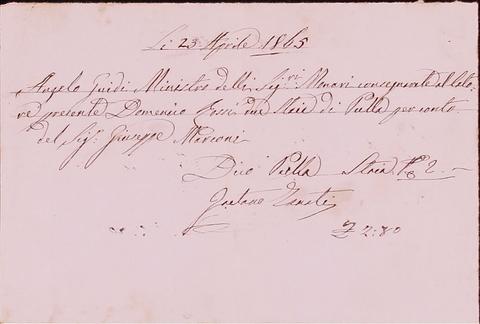 Li 23 Aprile 1865
Angelo Guidi Ministro delli Sig.ri Monari consegnerete al lato-
re presente Domenico Rossi due Staia di Pulla per conto
del Sig.r Giuseppe Marconi
Dico Pulla Staia N 2. —
Gaetano
£ 2:80